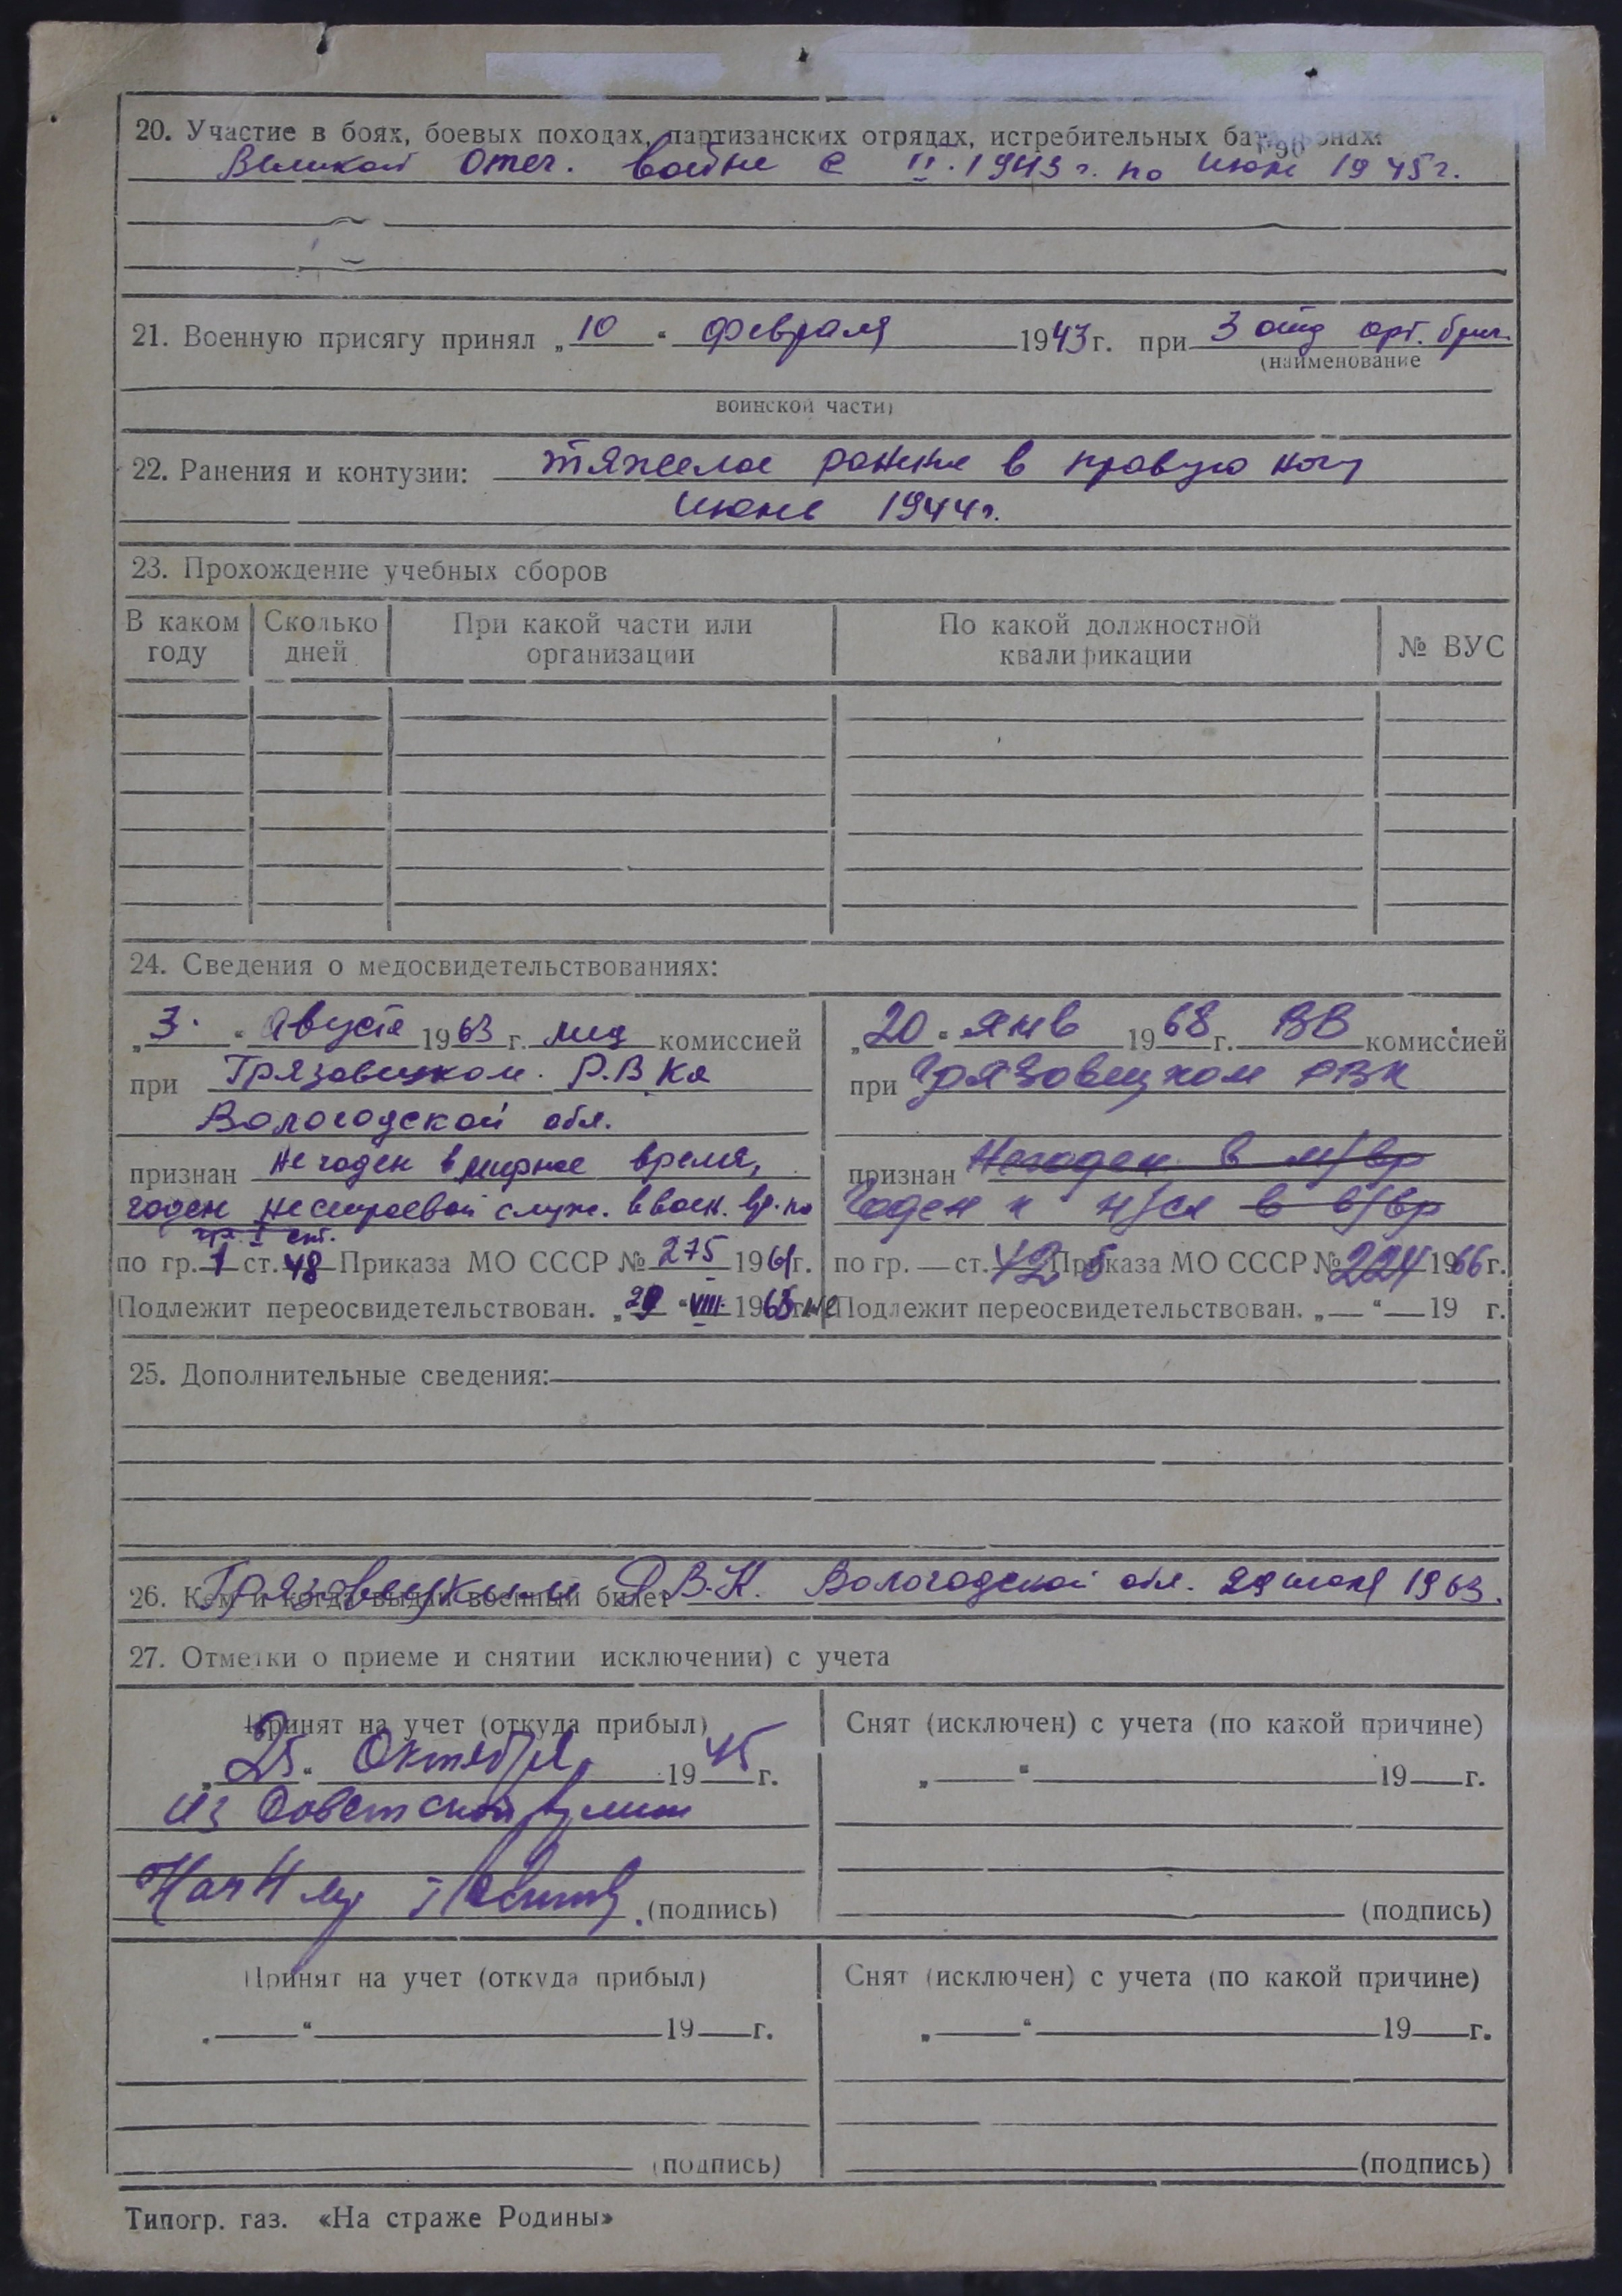 20. Участие в боях, боевых походах, партизанских отрядах, истребительных батальонах:
Великой Отеч. войне с II. 1943 г. по июнь 1945 г.
21. Военную присягу принял „10“ февраля 1943 г. при 3 отд арт. бриг.
(наименование
воинской части)
22. Ранения и контузии: тяжелое ранение в правую ногу
июнь 1944 г.
23. Прохождение учебных сборов
В каком году | Сколько дней | При какой части или организации | По какой должностной квалификации | № ВУС
24. Сведения о медосвидетельствованиях:
„3“ Августа 1963 г. мед комиссией
при Грязовецком Р.В.Ка
Вологодской обл.
признан Не годен в мирное время,
годен нестроевой служ. в воен. вр. по
гр. I
по гр. 1 ст. 48 Приказа МО СССР № 275 1961 г.
Подлежит переосвидетельствован. „ “ VIII 1965 г.
„20“ янв 1968 г. ВВ комиссией
при Грязовецком РВК
признан Негоден в м/вр
Годен к н/сл в в/вр
по гр. — ст. 42 б Приказа МО СССР № 224 1966 г.
не Подлежит переосвидетельствован. „—“ — 19 г.
25. Дополнительные сведения:
26. Кем и когда выдан военный билет Грязовецким Р.В.К. Вологодской обл. 29 1963.
27. Отметки о приеме и снятии исключении) с учета
Принят на учет (откуда прибыл)
„25“ Октября 1945 г.
из Советской Армии
Нач (подпись)
Снят (исключен) с учета (по какой причине)
„—“ 19—г.
(подпись)
Принят на учет (откуда прибыл)
„—“ 19—г.
(подпись)
Снят (исключен) с учета (по какой причине)
„—“ 19—г.
(подпись)
Типогр. газ. «На страже Родины»